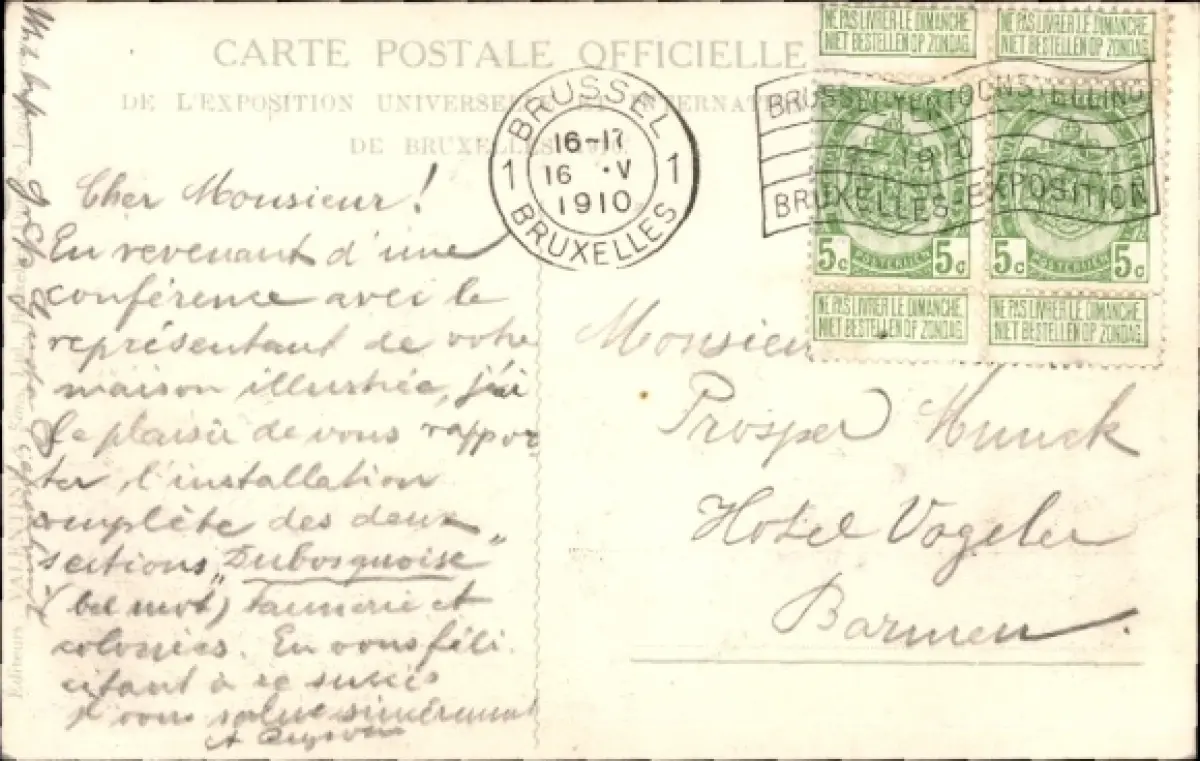 CARTE POSTALE OFFICIELLE
DE L'EXPOSITION UNIVERSELLE ET INTERNATI
DE BRUXELLES
NE PAS LIVRER LE DIMANCHE
NIET BESTELLEN OP ZONDAG
NE PAS LIVRER LE DIMANCHE
NIET BESTELLEN OP ZONDAG
BRUSSEL
1 16-17 1
16 ·V
1910
BRUXELLES
BRUSSEL-TENTOONSTELLING
BRUXELLES-EXPOSITION
5c 5c
5c 5c
NE PAS LIVRER LE DIMANCHE
NIET BESTELLEN OP ZONDAG
NE PAS LIVRER LE DIMANCHE
NIET BESTELLEN OP ZONDAG
Cher Monsieur!
En revenant d'une
conférence avec le
représentant de votre
maison illustrée, j'ai
le plaisir de vous rappor
ter l'installation
complète des deux
sections „Dubosquoise"
(bel mot) Tannerie et
colonies. En vous féli
citant à ce succès
vous salue sincèrement
Monsieur
Prosper Munck
Hotel Vogeler
Barmen.
Editeurs VALENTINE